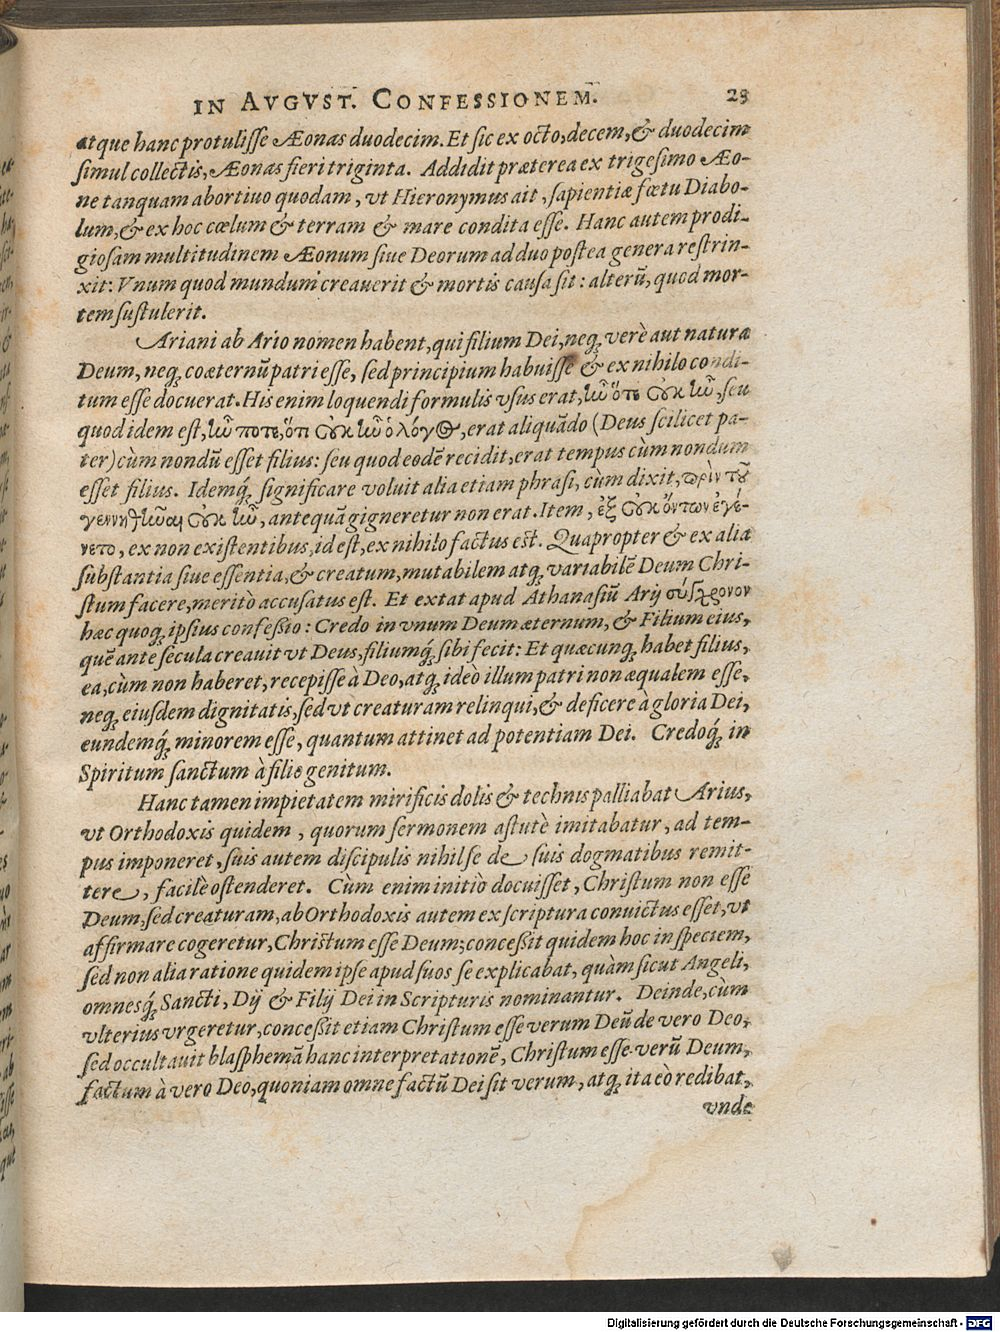 IN AVGVST. CONFESSIONEM. 23
atque hanc protulisse Æonas duodecim. Et sic ex octo, decem, & duodecim
simul collectis, Æonas fieri triginta. Addidit præterea ex trigesimo Æo-
ne tanquam abortiuo quodam, vt Hieronymus ait, sapientiæ fœtu Diabo-
lum, & ex hoc cœlum & terram & mare condita esse. Hanc autem prodi-
giosam multitudinem Æonum siue Deorum ad duo postea genera restrin-
xit: Vnum quod mundum creauerit & mortis causa sit: alterũ, quod mor-
tem sustulerit.
Ariani ab Ario nomen habent, qui filium Dei, neq; verè aut natura
Deum, neq; coæternũ patri esse, sed principium habuisse & ex nihilo condi-
tum esse docuerat. His enim loquendi formulis vsus erat, ἰῶ ὅτε οὐκ ἰῶ, seu
quod idem est, ἰῶ ποτε, ὅτι οὐκ ἰῶ ὁ λόγος, erat aliquãdo (Deus scilicet pa-
ter) cùm nondũ esset filius: seu quod eodẽ recidit, erat tempus cùm nondum
esset filius. Idemq́; significare voluit alia etiam phrasi, cùm dixit, πρὶν τοῦ
γεννηθῆναι οὐκ ἰῶ, antequã gigneretur non erat. Item, ἐξ οὐκ ὄντων ἐγέ-
νετο, ex non existentibus, id est, ex nihilo factus est. Quapropter & ex alia
substantia siue essentia, & creatum, mutabilem atq; variabilẽ Deum Chri-
stum facere, meritò accusatus est. Et extat apud Athanasiũ Arij σύγχρονον
hæc quoq; ipsius confessio: Credo in vnum Deum æternum, & Filium eius,
quẽ ante secula creauit vt Deus, filiumq́; sibi fecit: Et quæcunq; habet filius,
ea, cùm non haberet, recepisse à Deo, atq; ideò illum patri non æqualem esse,
neq; eiusdem dignitatis, sed vt creaturam relinqui, & deficere à gloria Dei,
eundemq́; minorem esse, quantum attinet ad potentiam Dei. Credoq́; in
Spiritum sanctum à filio genitum.
Hanc tamen impietatem mirificis dolis & technis palliabat Arius,
vt Orthodoxis quidem, quorum sermonem astutè imitabatur, ad tem-
pus imponeret, suis autem discipulis nihil se de suis dogmatibus remit-
tere, facilè ostenderet. Cùm enim initiò docuisset, Christum non esse
Deum, sed creaturam, ab Orthodoxis autem ex scriptura conuictus esset, vt
affirmare cogeretur, Christum esse Deum; concessit quidem hoc in speciem,
sed non alia ratione quidem ipse apud suos se explicabat, quàm sicut Angeli,
omnesq́; Sancti, Dij & Filij Dei in Scripturis nominantur. Deinde, cùm
vlterius vrgeretur, concessit etiam Christum esse verum Deũ de vero Deo,
sed occultauit blasphemã hanc interpretationẽ, Christum esse verũ Deum,
factum à vero Deo, quoniam omne factũ Dei sit verum, atq; ita eò redibat,
vnde
Digitalisierung gefördert durch die Deutsche Forschungsgemeinschaft - DFG